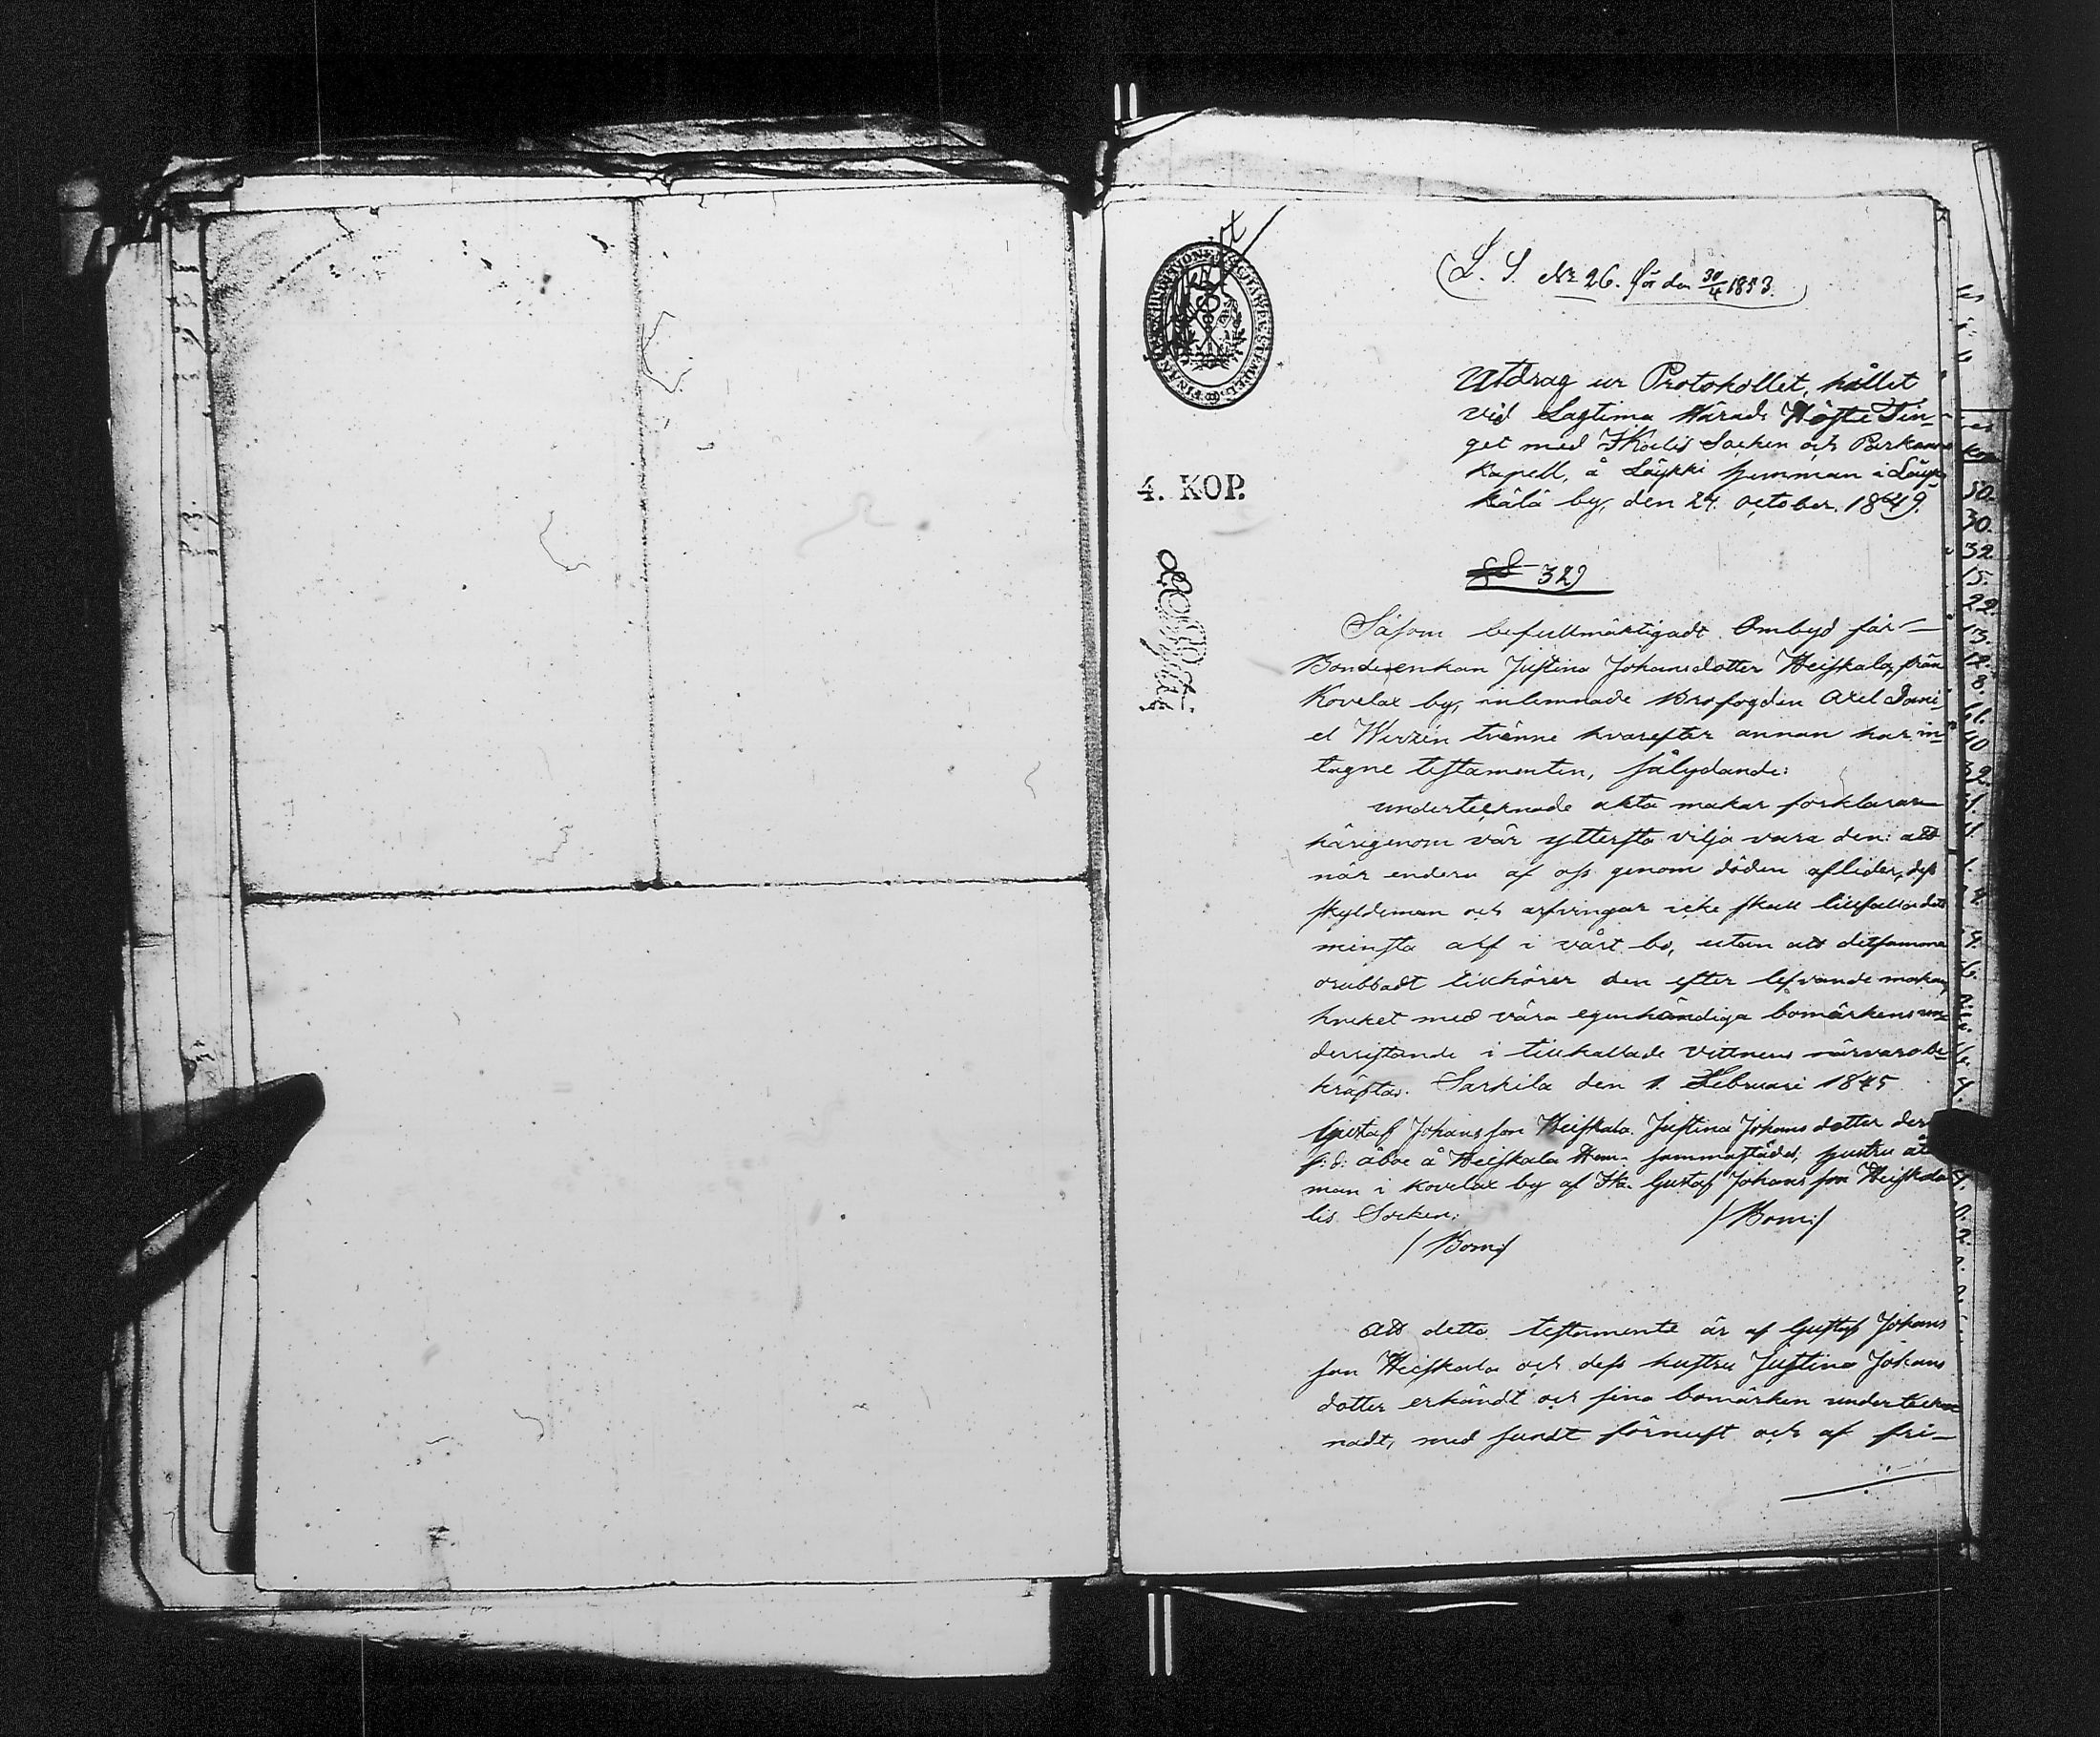 (L. S. No 26. för den 30/4 1853.)
Utdrag ur Protokollet, hållet
vid Lagtima Härads Höste Tin-
get med Ikalis Socken och Parkano
Kapell, å Läykki hemman i Läyk-
kälä by, den 24. october. 1849.
4. KOP.
§ 329
Såsom befullmäktigadt Ombud för
Bondeenkan Justina Johansdotter Heiskala, från
Kovelax by, inlemnade Brofogden Axel Dani-
el Wirzén tvänne hvarefter annan här in-
tagne testamenten, sålydande:
undertecknade äkta makar förklarar
härigenom vår yttersta vilja vara den: att
när endera af oss genom döden aflider, dess
skyldeman och arfvingar icke skall tillfalla det
minsta arf i vårt bo, utan att detsamma
orubbadt tillhörer den efter lefvande makan,
hvilket med våra egenhändiga bomärkens un-
dersittande i tillkallade vittnens närvaro be-
kräftas. Sarkila den 1. Februari 1845
Gustaf Johansson Heiskala. Justina Johans dotter der
f: d: åboe å Heiskala Hem- sammastädes, hustru åt
man i Kovelax by af Ika- Gustaf Johans son Heiskala
lis Socken;
/Bom:/
/Bom:/
Att detta testamente är af Gustaf Johans
son Heiskala och dess hustru Justina Johans
dotter erkändt och sina bomärken underteck
nadt, med sundt förnuft och af fri-